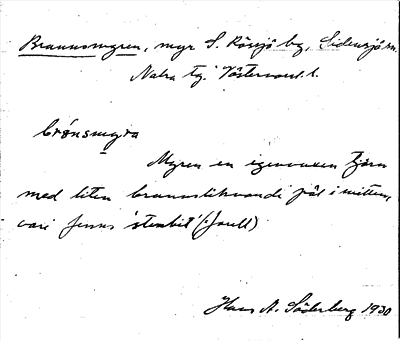 Brunnsmyren, myr S. Rösjö by, Sidensjö sn.
Nätra tg. Västernorrl. l.
brønsmyra
Myren en igenvuxen tjärn
med liten brunnsliknande pöl i mitten,
vari finns 'stenbit' (:Jonell)
Hans A. Söderberg 1930